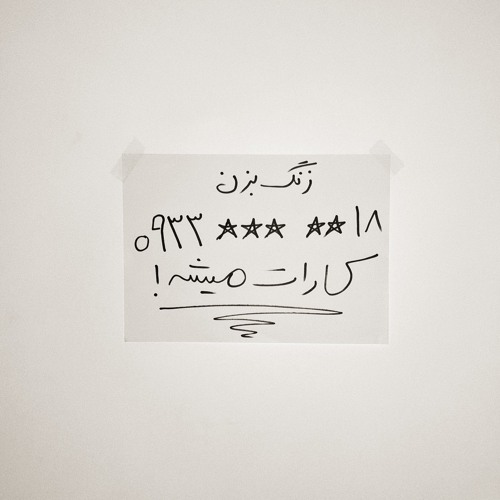 زنگ بزن
۰۹۳۳ ☆☆☆ ☆☆۱۸
کارات میشه!